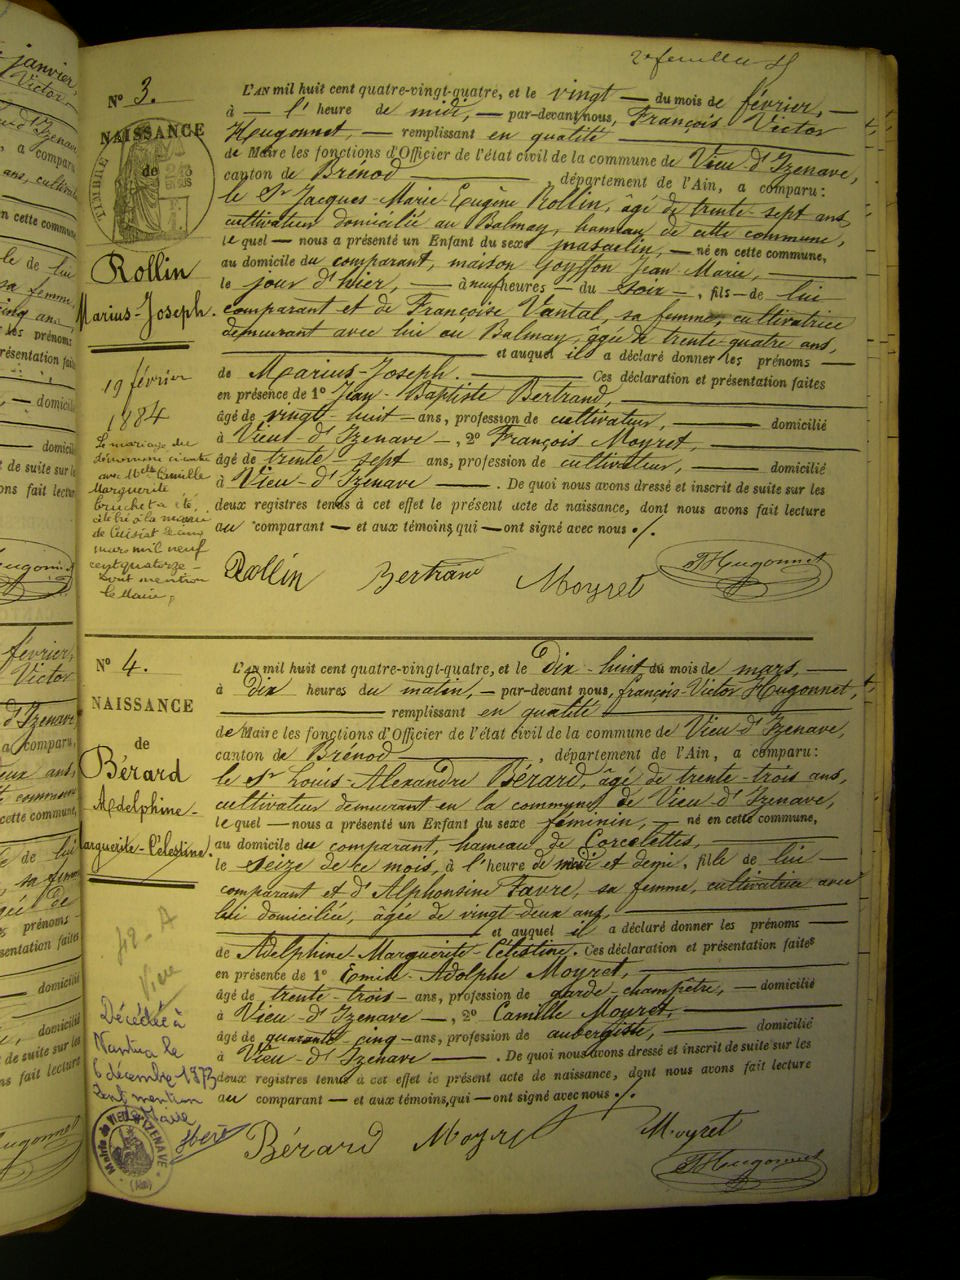 2e feuillet
N° 3.
NAISSANCE
de
TIMBRE
Rollin
Marius-Joseph.
19 février
1884
Le mariage du
dénommé ci-contre
avec Melle Camille
Marguerite
a été
célébré à la mairie
de Cuisiat le cinq
mars mil neuf
cent quatorze –
Dont mention
le Maire,
L'AN mil huit cent quatre-vingt-quatre, et le vingt — du mois de février, —
à — l' heure de midi, — par-devant nous, François Victor
Hugonnet, — remplissant en qualité
de Maire les fonctions d'Officier de l'état civil de la commune de Vieu-d'Izenave,
canton de Brénod, département de l'Ain, a comparu:
le Sr Jacques-Marie-Eugène Rollin, âgé de trente-sept ans,
cultivateur domicilié au Balmay, hameau de cette commune,
le quel — nous a présenté un Enfant du sexe masculin, — né en cette commune,
au domicile du comparant, maison Goyffon Jean-Marie,
le jour d'hier, — à neuf heures — du soir —, fils — de lui
comparant et de Françoise Vantal, sa femme, cultivatrice
demeurant avec lui au Balmay, âgée de trente-quatre ans,
et auquel il a déclaré donner les prénoms
de Marius-Joseph. Ces déclaration et présentation faites
en présence de 1° Jean-Baptiste Bertrand,
âgé de vingt-huit — ans, profession de cultivateur, domicilié
à Vieu-d'Izenave —, 2° François Moyret,
âgé de trente-sept ans, profession de cultivateur, domicilié
à Vieu-d'Izenave. De quoi nous avons dressé et inscrit de suite sur les
deux registres tenus à cet effet le présent acte de naissance, dont nous avons fait lecture
au comparant — et aux témoins, qui — ont signé avec nous ./.
Rollin Bertrand Moyret Hugonnet
N° 4.
NAISSANCE
de
Bérard
Adelphine-
Marguerite-Célestine.
42-A
Vieu
Décédée à
Nantua le
6 décembre 1973
Dont mention
le Maire
Mairie de VIEU-D'IZENAVE (Ain)
L'AN mil huit cent quatre-vingt-quatre, et le Dix-huit du mois de mars,
à Dix heures du matin, — par-devant nous, françois-Victor Hugonnet,
remplissant en qualité
de Maire les fonctions d'Officier de l'état civil de la commune de Vieu-d'Izenave,
canton de Brénod, département de l'Ain, a comparu:
le Sr Louis-Alexandre Bérard, âgé de trente-trois ans,
cultivateur demeurant en la commune de Vieu-d'Izenave,
le quel — nous a présenté un Enfant du sexe féminin, — né en cette commune,
au domicile du comparant, hameau de Corcelettes,
le Seize de ce mois, à l'heure de midi et demi, fille de lui
comparant et d'Alphonsine Favre, sa femme, cultivatrice avec
lui domiciliée, âgée de vingt-deux ans,
et auquel il a déclaré donner les prénoms
de Adelphine-Marguerite-Célestine. Ces déclaration et présentation faites
en présence de 1° Emile-Adolphe Moyret,
âgé de trente-trois — ans, profession de garde-champêtre, — domicilié
à Vieu-d'Izenave —, 2° Camille Moyret,
âgé de quarante-cinq — ans, profession de aubergiste, domicilié
à Vieu-d'Izenave. De quoi nous avons dressé et inscrit de suite sur les
deux registres tenus à cet effet le présent acte de naissance, dont nous avons fait lecture
au comparant — et aux témoins, qui — ont signé avec nous ./.
Bérard Moyret Moyret
Hugonnet